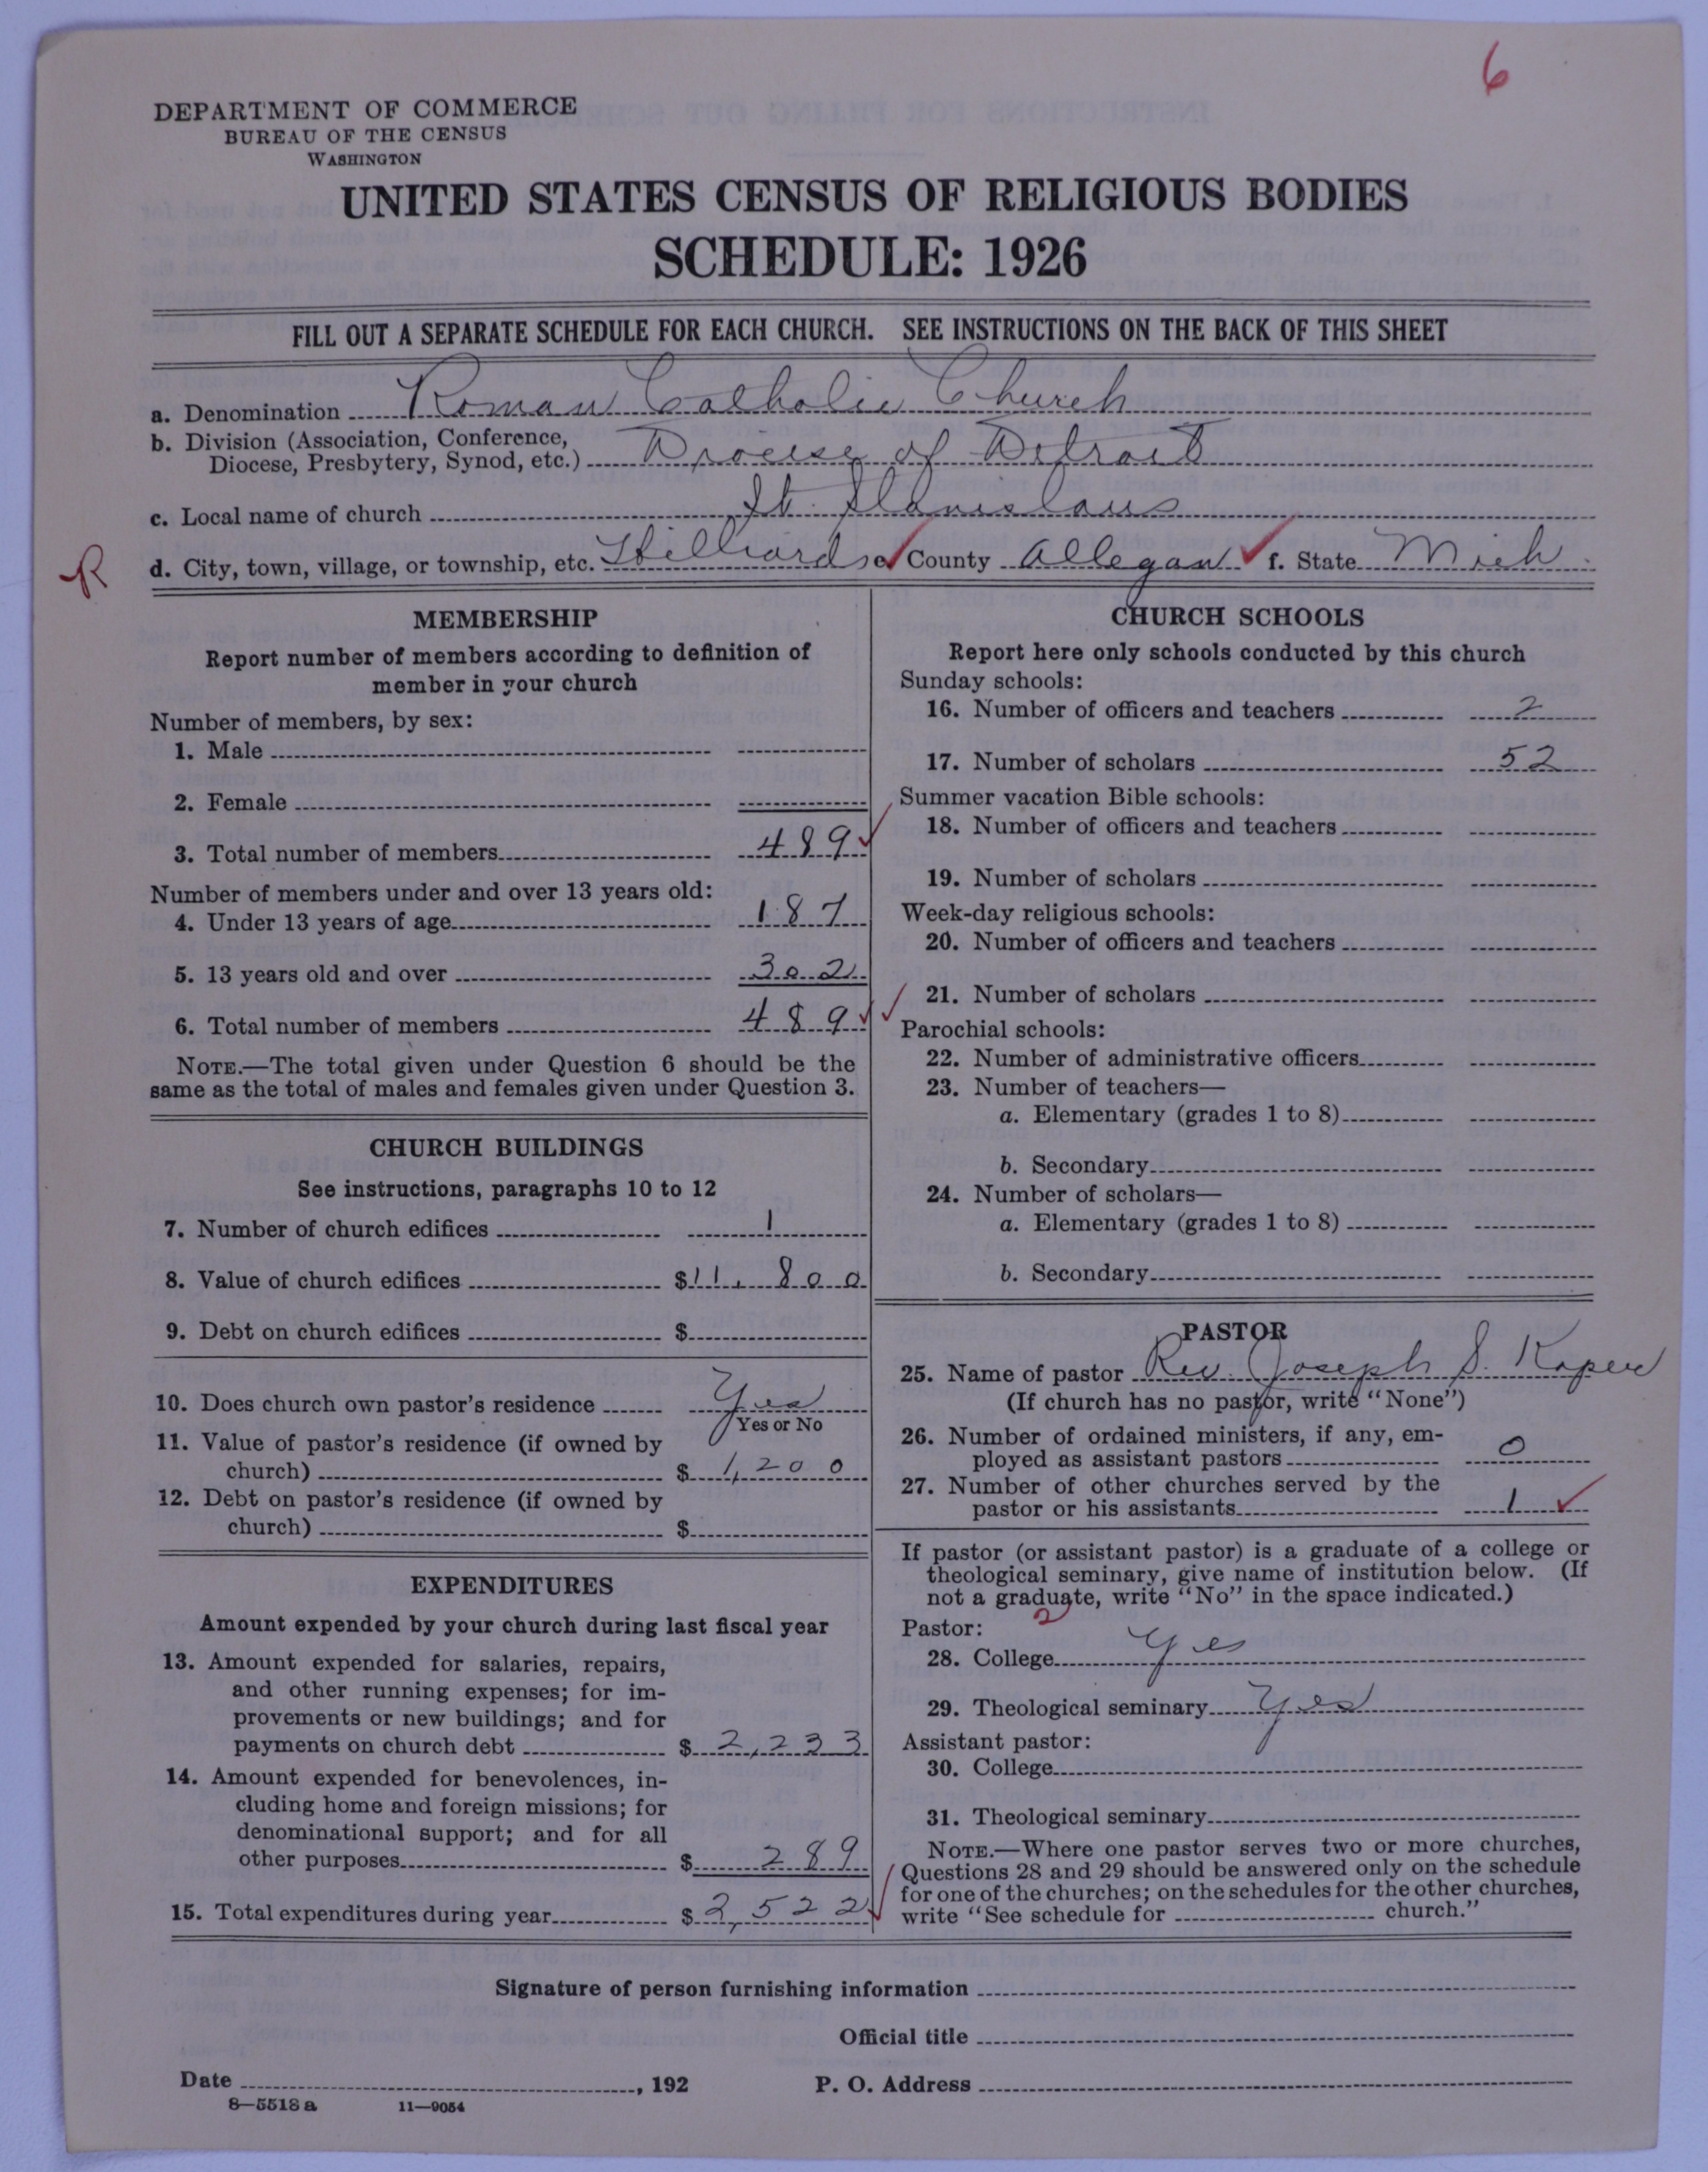 6
DEPARTMENT OF COMMERCE
BUREAU OF THE CENSUS
WASHINGTON
UNITED STATES CENSUS OF RELIGIOUS BODIES
SCHEDULE: 1926
FILL OUT A SEPARATE SCHEDULE FOR EACH CHURCH. SEE INSTRUCTIONS ON THE BACK OF THIS SHEET
a. Denomination Roman Catholic Church
b. Division (Association, Conference,
Diocese, Presbytery, Synod, etc.) Diocese of Detroit
c. Local name of church St. Stanislaus
R d. City, town, village, or township, etc. Hilliards e. County Allegan f. State Mich.
MEMBERSHIP
Report number of members according to definition of
member in your church
Number of members, by sex:
1. Male
2. Female
3. Total number of members 489
Number of members under and over 13 years old:
4. Under 13 years of age 187
5. 13 years old and over 302
6. Total number of members 489
NOTE.—The total given under Question 6 should be the
same as the total of males and females given under Question 3.
CHURCH BUILDINGS
See instructions, paragraphs 10 to 12
7. Number of church edifices 1
8. Value of church edifices $11,800
9. Debt on church edifices $
10. Does church own pastor's residence Yes
Yes or No
11. Value of pastor's residence (if owned by
church) $ 1,200
12. Debt on pastor's residence (if owned by
church) $
EXPENDITURES
Amount expended by your church during last fiscal year
13. Amount expended for salaries, repairs,
and other running expenses; for im-
provements or new buildings; and for
payments on church debt $ 2,233
14. Amount expended for benevolences, in-
cluding home and foreign missions; for
denominational support; and for all
other purposes $ 289
15. Total expenditures during year $ 2,522
CHURCH SCHOOLS
Report here only schools conducted by this church
Sunday schools:
16. Number of officers and teachers 2
17. Number of scholars 52
Summer vacation Bible schools:
18. Number of officers and teachers
19. Number of scholars
Week-day religious schools:
20. Number of officers and teachers
21. Number of scholars
Parochial schools:
22. Number of administrative officers
23. Number of teachers—
a. Elementary (grades 1 to 8)
b. Secondary
24. Number of scholars—
a. Elementary (grades 1 to 8)
b. Secondary
PASTOR
25. Name of pastor Rev. Joseph S.
(If church has no pastor, write "None")
26. Number of ordained ministers, if any, em-
ployed as assistant pastors 0
27. Number of other churches served by the
pastor or his assistants 1
If pastor (or assistant pastor) is a graduate of a college or
theological seminary, give name of institution below. (If
not a graduate, write "No" in the space indicated.)
Pastor: 2
28. College Yes
29. Theological seminary Yes
Assistant pastor:
30. College
31. Theological seminary
NOTE.—Where one pastor serves two or more churches,
Questions 28 and 29 should be answered only on the schedule
for one of the churches; on the schedules for the other churches,
write "See schedule for church."
Signature of person furnishing information
Official title
Date , 192 P. O. Address
8—5518 a 11—9054